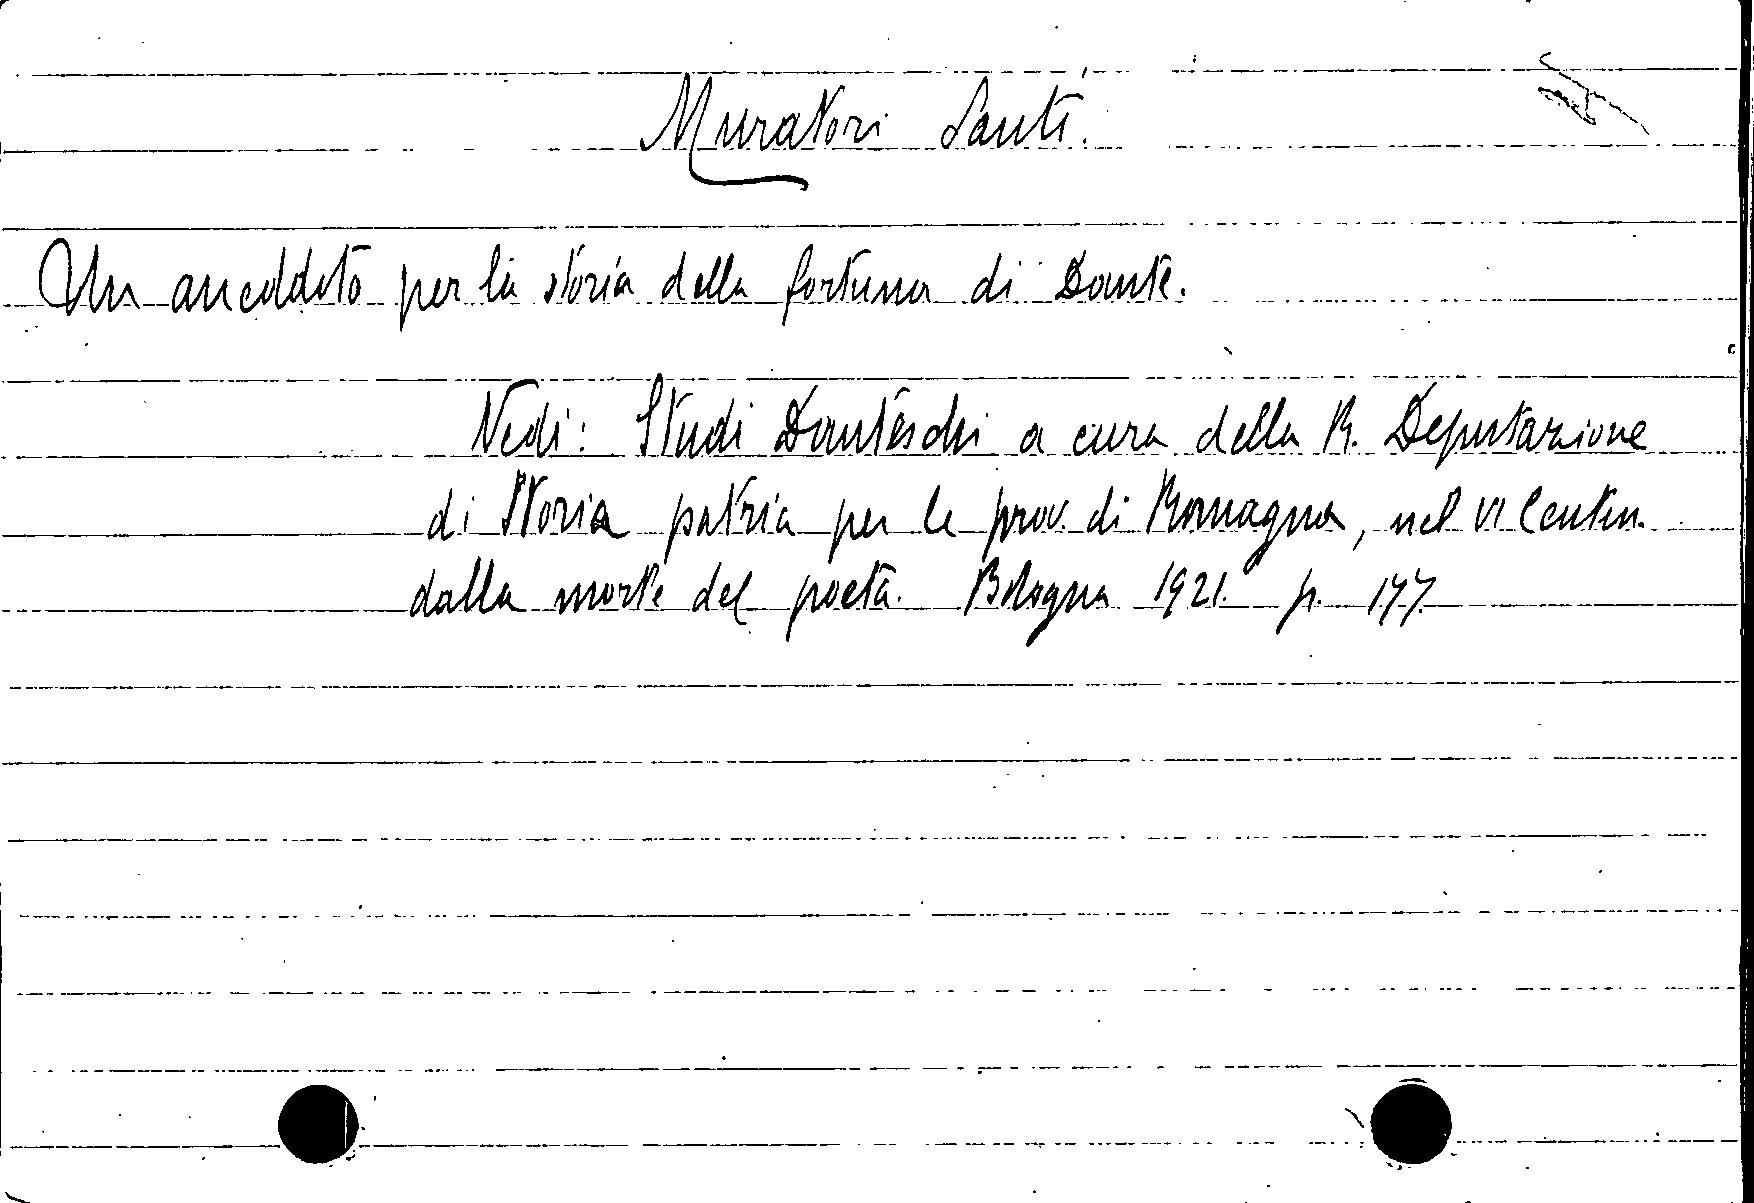 Muratori Santi.
Un aneddoto per la storia della fortuna di Dante.
Vedi: Studi Danteschi a cura della R. Deputazione
di Storia patria per le prov. di Romagna, nel VI Centen.
dalla morte del poeta. Bologna 1921. p. 177